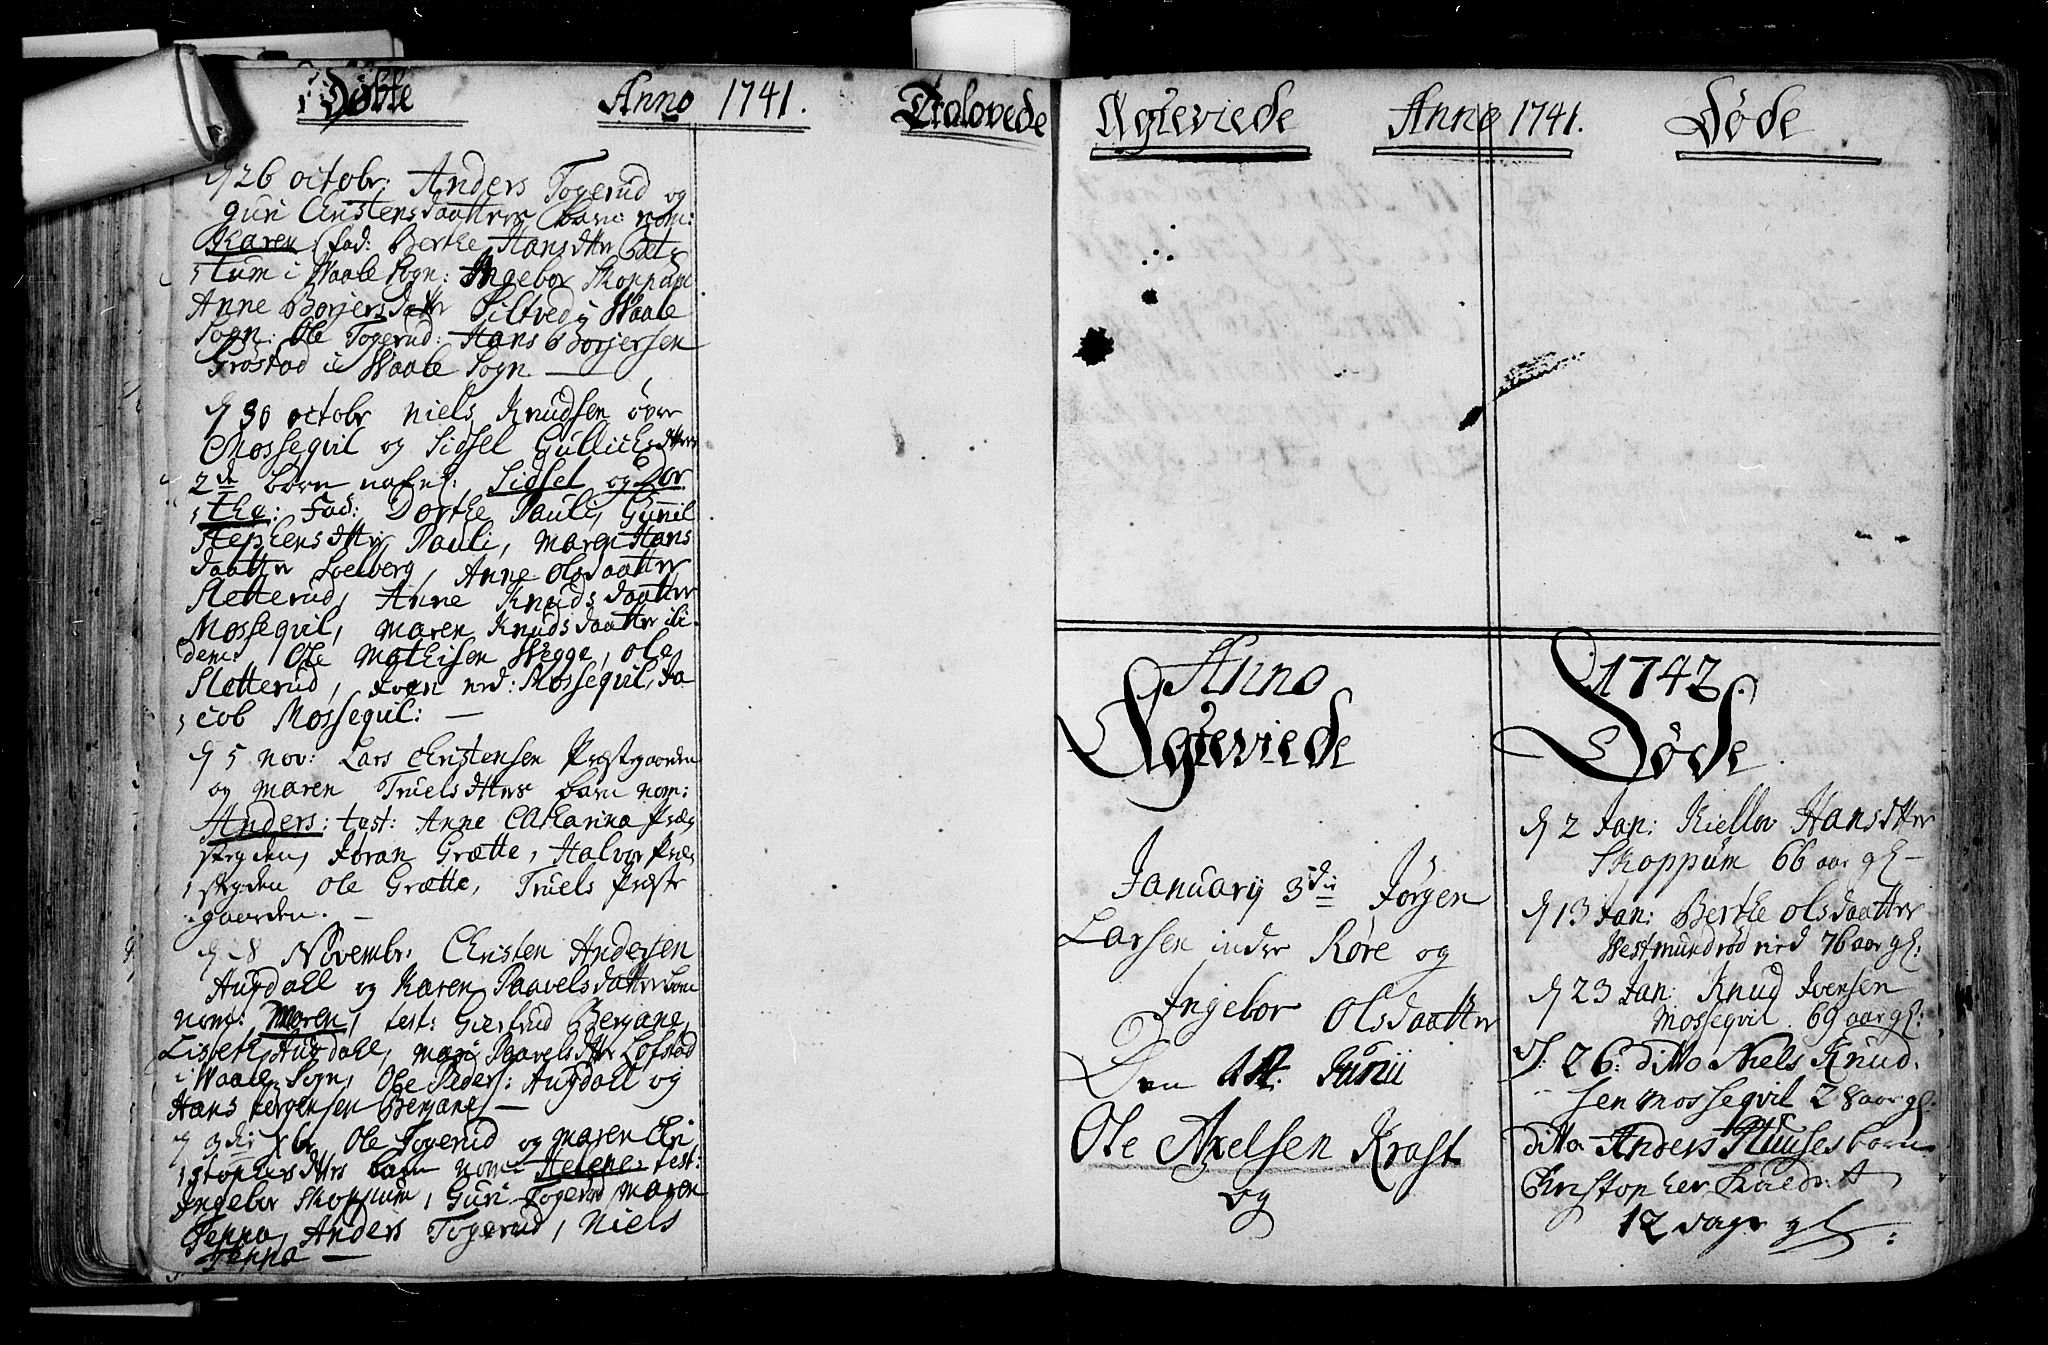 Døbte Anno 1741. Trolovede
d 26 octobr: Anders Togerud og
Guri Christensdaatters barn: nom:
Karen, fad: Berthe Hansdtter
stum i Waale Sogn: Ingebor Skoppum
Anne Borjersdatter Siltved i Waale
Sogn: Ole Togerud: Hans Borjersen
Grøstad i Waale Sogn —
d 30 octobr Niels Knudsen øvre
Mossequil og Sidsel Gullichsdtters
2de børn nafnl: Sidsel og Dor
the: Fad: Dorthe Pauli, Gunil
Stephensdtter Pauli, Maren Hans
daatter Soelberg, Anne Olsdaatter
Sletterud, Anne Knudsdaatter
Mossequil, Maren Knudsdaatter ibi
dem: Ole Mathisen Wegge, Ole
Sletterud, Joen ned: Mossequil, Ja
cob Mossequil: —
d 5 nov: Lars Christensen Præstegaarden
og Maren Truelsdtters barn nom:
Anders: test: Anne Catharina Præ
stegden, Joran Grætte, Halvor Præ
stegden Ole Grætte, Truels Præste
gaarden. —
d 28 Novembr: Christen Andersen
Augdall og Karen Paavelsdatters barn
nom: Maren, test: Giertrud Bergane,
Lisbeth Augdahl, Mari Paavelsdtter Lofstad
i Waale Sogn, Ole Peders: Augdall og
Hans Jørgensen Bergane —
d 9di Xbr Ole Togerud og Maren Chri
stophersdtters barn nom: Helene: test:
Ingebor Skoppum, Guri Togerud, Maren
Jenna, Anders Togerud, Niels
Jenna —
Ægteviede Anno 1741. Døde
Anno
Ægteviede
January 3die Jørgen
Larsen Røre og
Ingebor Olsdaatter
Den Junii
Ole Axelsen Kraft
og
1742.
Døde.
d 2 Jan: Kiellov Hansdtter
Skoppum 66 aar gl —
d 13 Jan: Berthe Olsdaatter
Westmundrød ned 76 aar gl:
d 23 Jan: Knud Joensen
Mossequil 69 aar gl:
d: 26: ditto Niels Knud
sen Mossequil 28 aar gl:
ditto Anders barn
Christopher
12 dage gl: